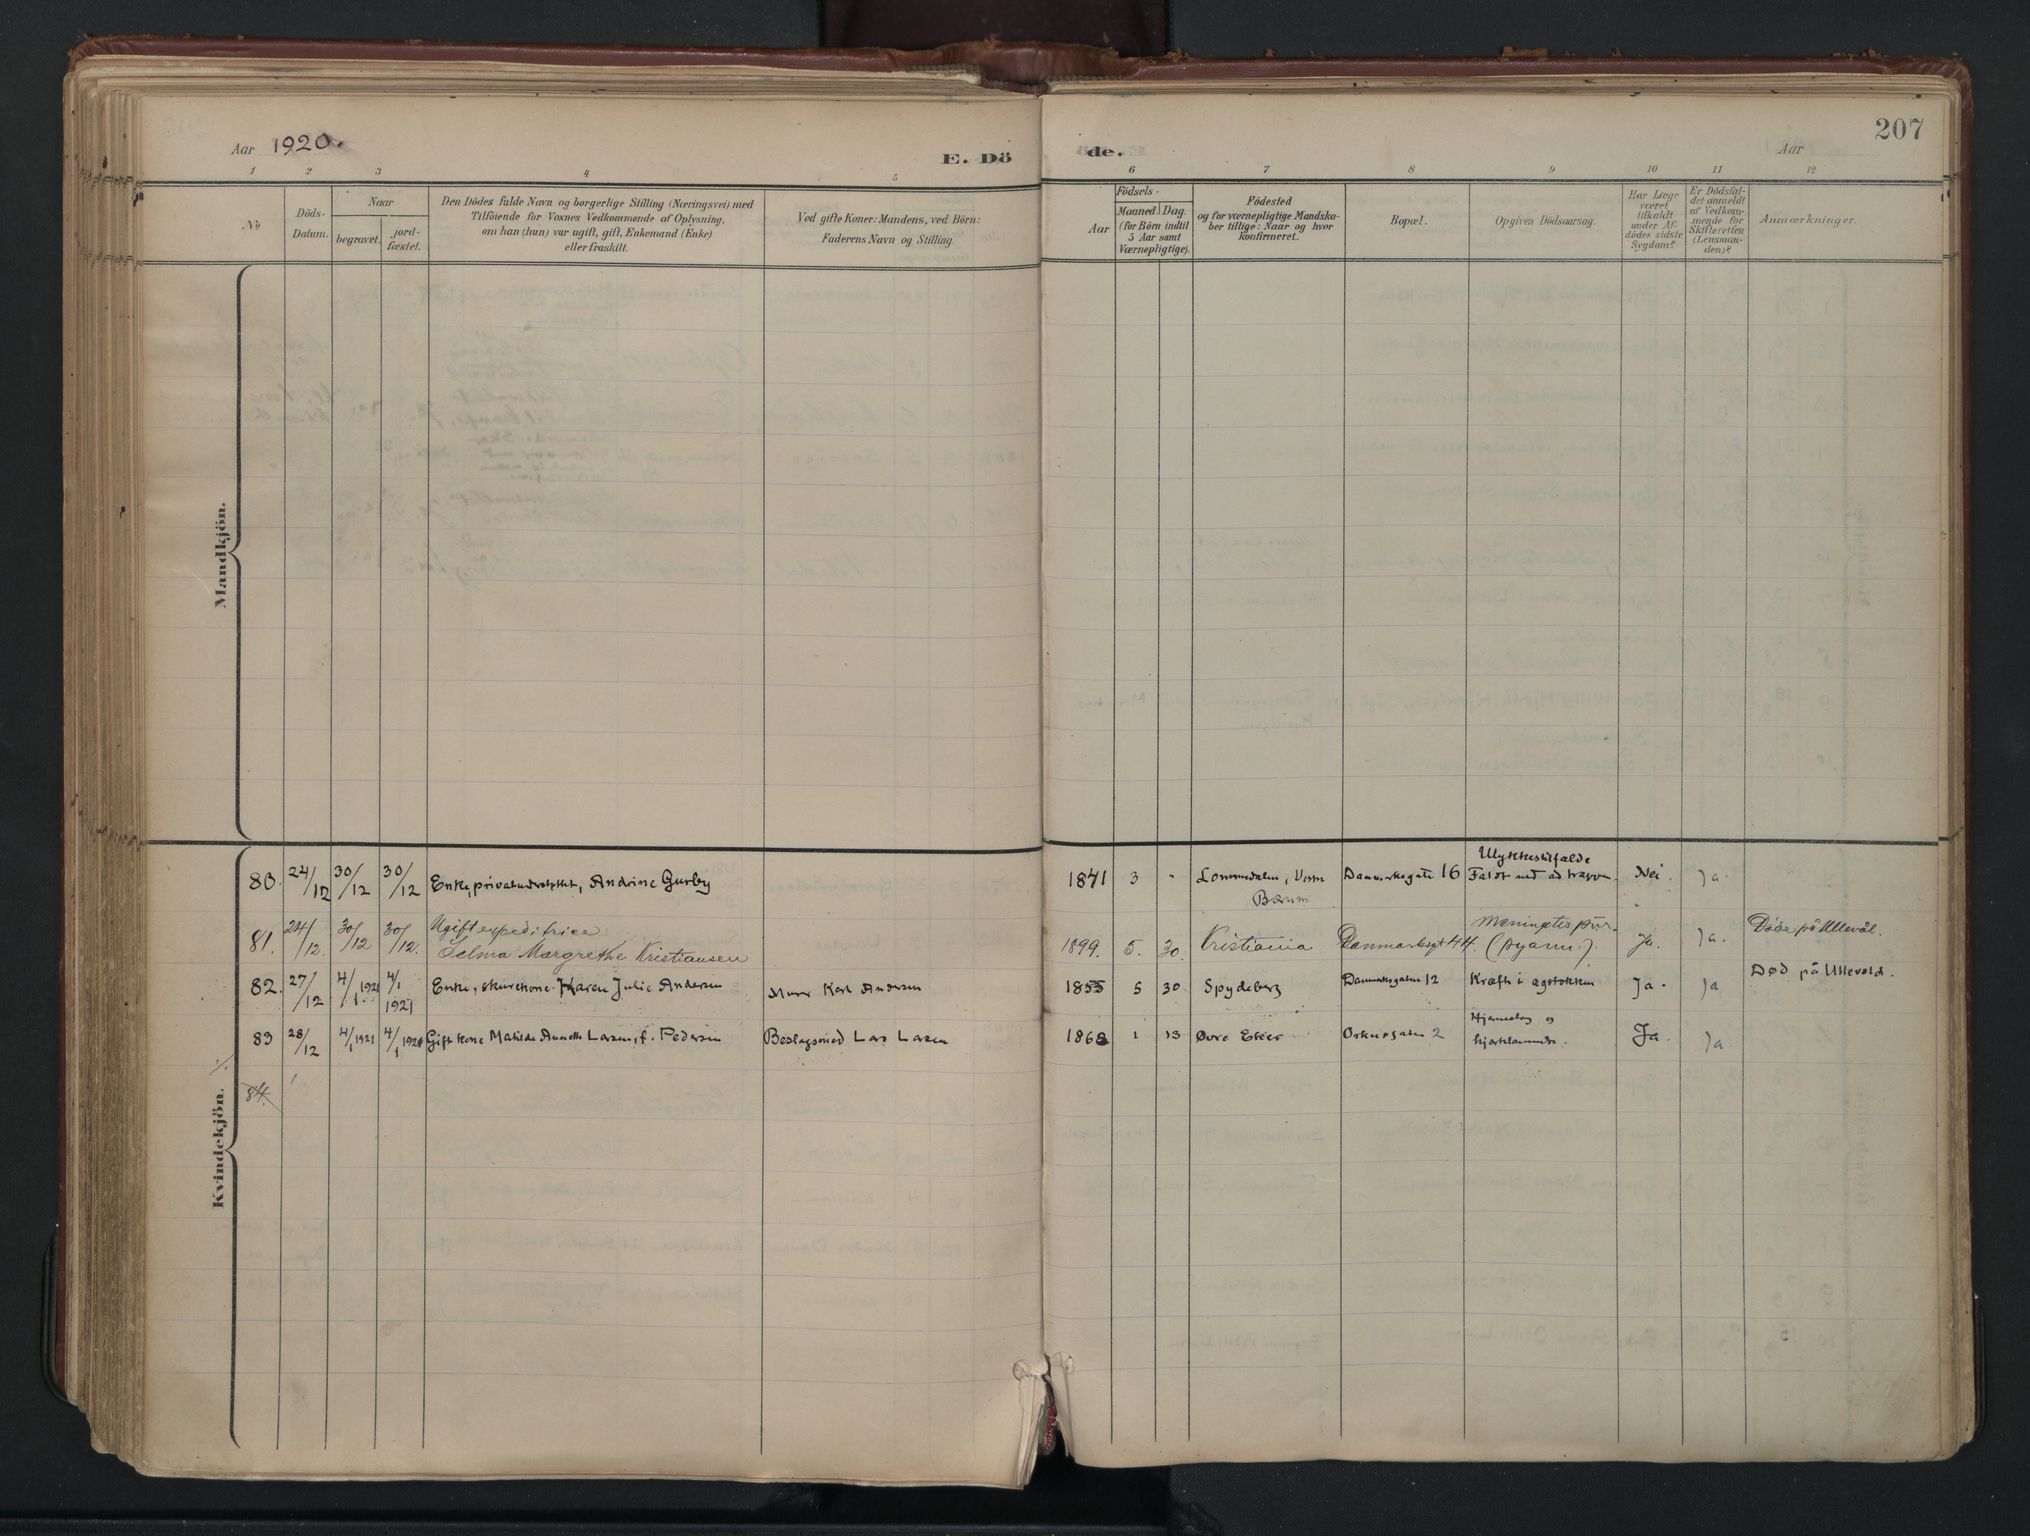 Aar 1920.
E. Dö
de.
Aar
207
1 2 3 4 5 6 7 8 9 10 11 12
No.
Döds-
Datum.
Naar
begravet.
jord-
fæstet.
Den Dödes fulde Navn og borgerlige Stilling (Næringsvei) med
Tilföiende for Voxnes Vedkommende af Oplysning,
om han (hun) var ugift, gift, Enkemand (Enke)
eller fraskilt.
Ved gifte Koner: Mandens, ved Börn:
Faderens Navn og Stilling.
Födsels-
Aar
Maaned. Dag.
(for Börn indtil
5 Aar samt
Værnepligtige).
Födested
og for værnepligtige Mandska-
ber tillige: Naar og hvor
Konfirmeret.
Bopæl.
Opgiven Dödsaarsag.
Har Læge
været
tilkaldt
under Af-
dödes sidste
Sygdom?
Er Dödsfal-
det anmeldt
af Vedkom-
mende for
Skifteretten
(Lensman-
den)?
Anmærkninger.
Mandkjön.
Kvindekjön.
80. 24/12 30/12 30/12 Enke, privatunderstøttet, Andrine Gurby 1841 3 " Lommedalen, Vestre Bærum Danmarksgate 16 Ulykkestilfælde Faldt ned ad trappen. Nei. Ja.
81. 24/12. 30/12 30/12. Ugift expeditrice
Selma Margrethe Kristiansen 1899. 5. 30. Kristiania Danmarksgt 44. Meningitis pur. (pyæmi). Ja. Ja. Døde på Ullevål.
82. 27/12 4/1 1921 4/1 1921 Enke, skurekone Karen Julie Andersen Murer Karl Andersen 1855 5 30 Spydeberg Danmarksgaten 12 Kræft i ægstokken Ja. Ja Død på Ullevold.
83 28/12 4/1 1921 4/1 1921 Gift kone Matilde Annette Larsen, f. Pedersen Beslagsmed Lars Larsen 1868 1 13 Øvre Eker Orknøgaten 2 Hjerneslag og hjertelammelse. Ja. Ja.
84.